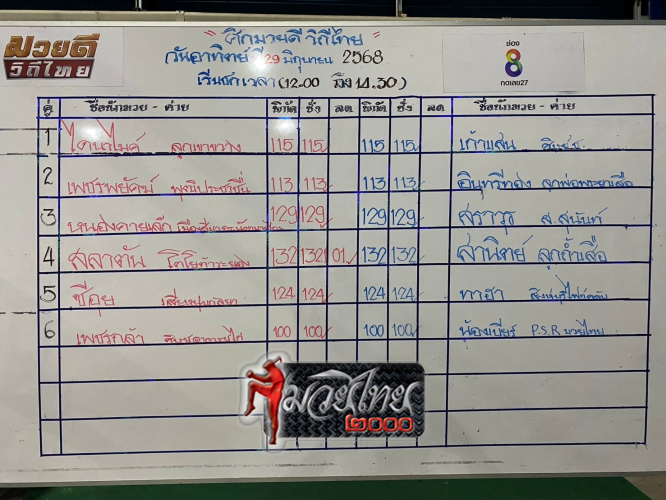 มวยดี
วิถีไทย
" ศึกมวยดี วิถีไทย "
วันอาทิตย์ที่ 29 มิถุนายน 2568
เริ่มชกเวลา (12.00 ถึง 14.30)
ช่อง
8
กดเลข27
คู่ ชื่อนักมวย - ค่าย พิกัด ชั่ง ลด พิกัด ชั่ง ลด ชื่อนักมวย - ค่าย
1 ไดนาไมค์ ลูกเขาขวาง 115 115 115 115 เก้าแสน
2 เพชรพยัคฆ์ 113 113 113 113 อินทรีทอง ลูกพ่อพระยาเสือ
3 หนองคายเล็ก 129 129 129 129 สราวุธ ส.สุนันท์
4 สลาตัน 132 132 132 132 สานิตย์ ลูกถ้ำเสือ
5 ซีอุย 124 124 124 124 ทาฮา
6 เพชรกล้า 100 100 100 100 น้องเบียร์ P.S.R มวยไทย
มวยไทย
2000